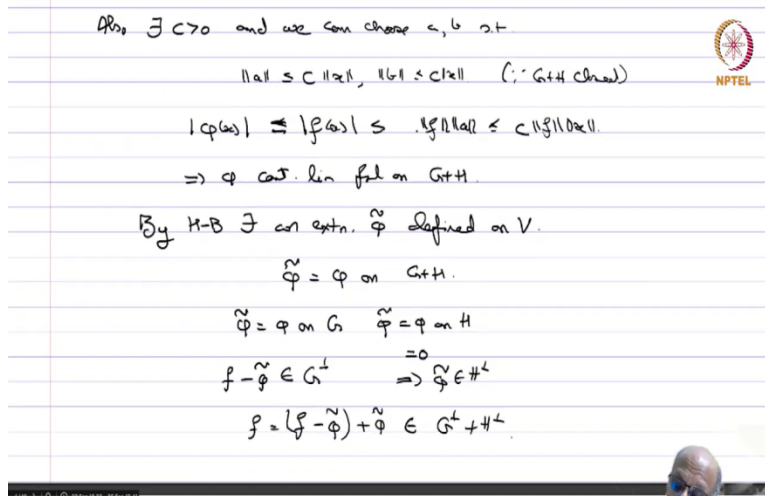 Also ∃ C>0 and we can choose a, b s.t.
||a|| ≤ C ||x||, ||b|| ≤ C||x|| (∵ G+H closed)
NPTEL
|φ(x)| = |f(a)| ≤ ||f|| ||a|| ≤ C ||f|| ||x||.
⇒ φ cont. lin fnl on G+H.
By H-B ∃ an extn. φ̃ defined on V.
φ̃ = φ on G+H.
φ̃ = φ on G φ̃ = φ on H
=0
f - φ̃ ∈ G⊥ ⇒ φ̃ ∈ H⊥
f = (f - φ̃) + φ̃ ∈ G⊥ + H⊥.